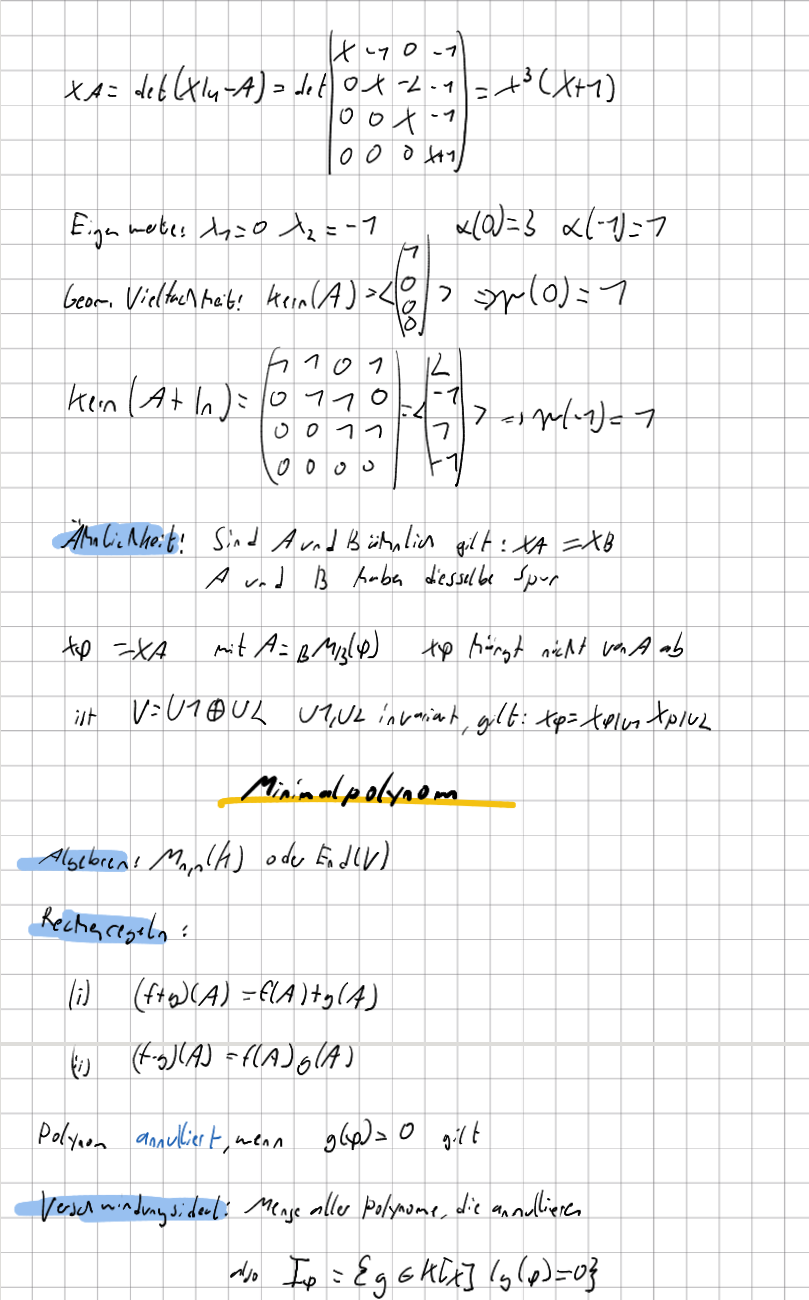 XA = det(X1n-A) = det (X -1 0 -1; 0 X -2 -1; 0 0 X -1; 0 0 0 X+1) = X³(X+1)
Eigenwerte: λ1=0 λ2=-1 α(0)=3 α(-1)=1
Geom. Vielfachheit: Kern(A) = <(1; 0; 0; 0)> => γ(0)=1
Kern(A+1n) = (1 1 0 1; 0 1 1 0; 0 0 1 1; 0 0 0 0) = <(2; -1; 1; -1)> => γ(-1)=1
Ähnlichkeit: Sind A und B ähnlich gilt: XA = XB
A und B haben dieselbe Spur
Xφ = XA mit A = BMB(φ) Xφ hängt nicht von A ab
ist V = U1⊕U2 U1,U2 invariant, gilt: Xφ = Xφ|U1 Xφ|U2
Minimalpolynom
Algebren: Mn,n(K) oder End(V)
Rechenregeln:
(i) (f+g)(A) = f(A)+g(A)
(ii) (f·g)(A) = f(A)g(A)
Polynom annulliert, wenn g(φ)=0 gilt
Verschwindungsideal: Menge aller Polynome, die annullieren
also Iφ = {g ∈ K[X] | g(φ)=0}